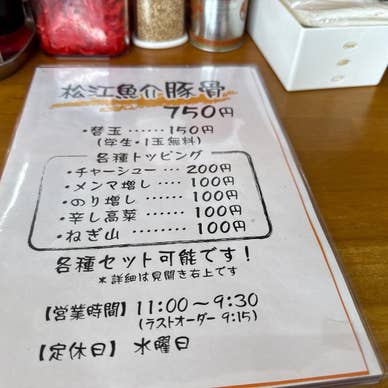 松江魚介豚骨
750円
・替玉……150円
(学生・1玉無料)
各種トッピング
・チャーシュー…200円
・メンマ増し…100円
・のり増し……100円
・辛し高菜……100円
・ねぎ山………100円
各種セット可能です!
*詳細は見開き右上です
【営業時間】11:00〜9:30
(ラストオーダー 9:15)
【定休日】水曜日